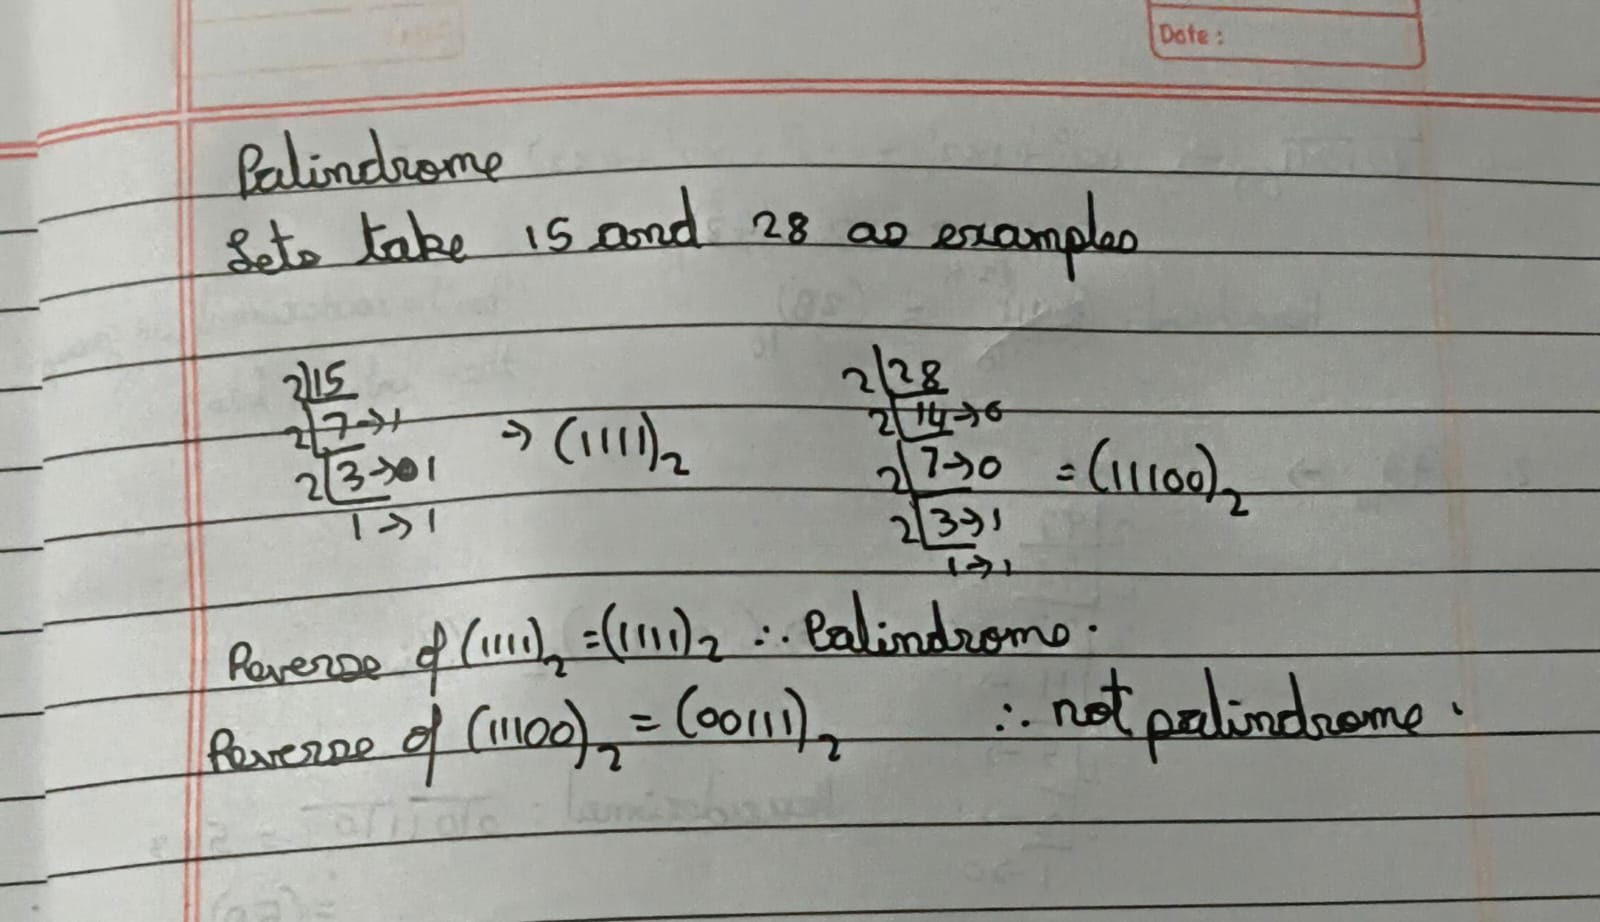 Date:
Palindrome
Lets take 15 and 28 as examples
2|15
2|7→1
2|3→1
1→1
→ (1111)₂
2|28
2|14→0
2|7→0
2|3→1
1→1
= (11100)₂
Reverse of (1111)₂ = (1111)₂ ∴ Palindrome.
Reverse of (11100)₂ = (00111)₂ ∴ not palindrome.